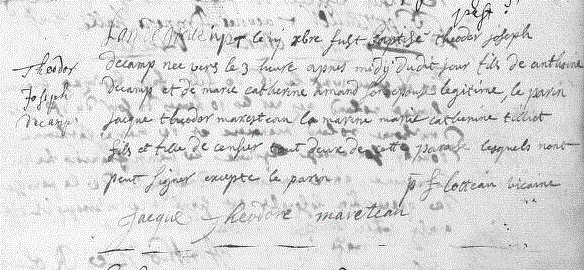 past:
Theodor
Joseph
decamp
Lan le xbre fust baptisé theodor joseph
decamp nee vers le 3 heure apres midy dudit jour fils de anthoine
decamp et de marie catherine amand son epous legitime, le parin
jacque theodor mareteau la marine marie catherine tilliot
fils et fille de censer tout deux de cette paroise lesquels nont
peut signer excepte le parin p f lotteau vicaire
Jacque Theodore mareteau